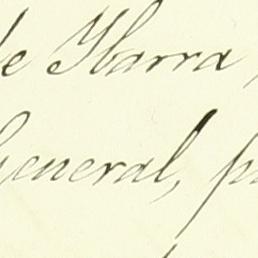 de Ibarra,
General, p